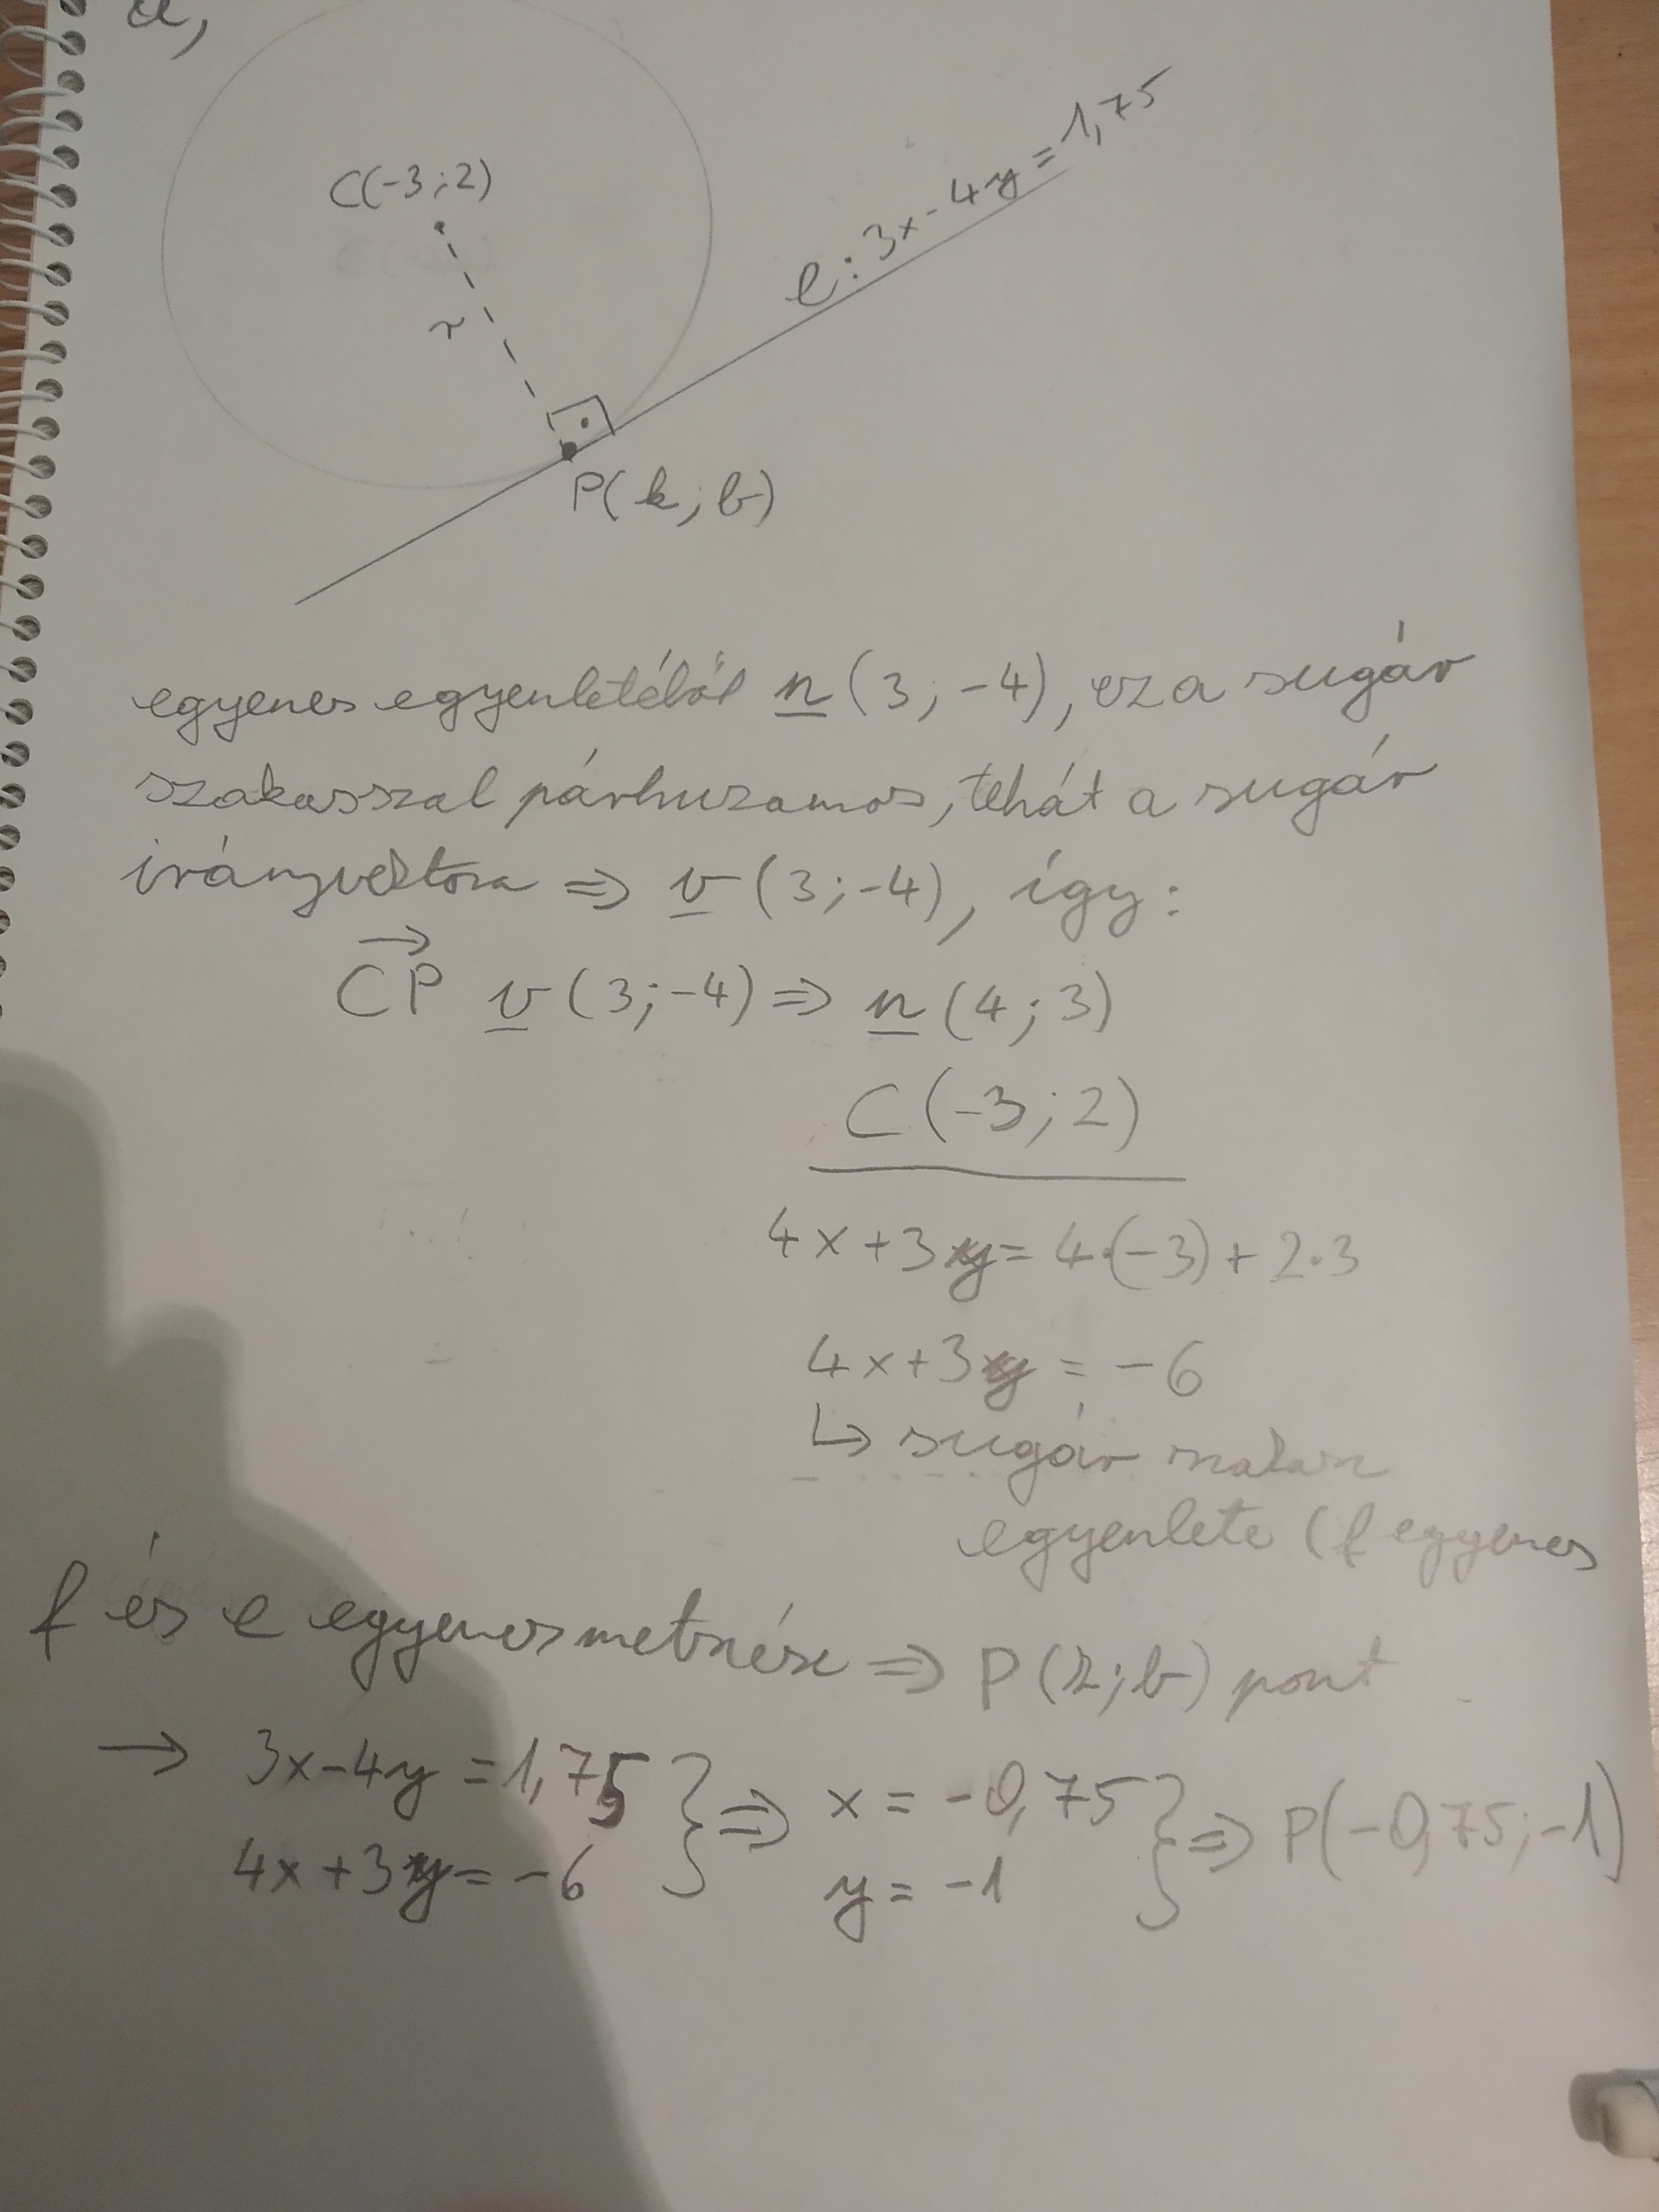 a,
C(-3;2)
e: 3x-4y=1,75
r
P(k;b)
egyenes egyenletéből n(3;-4), ez a sugár
szakasszal párhuzamos, tehát a sugár
irányvektora ⇒ v(3;-4), így:
CP v(3;-4) ⇒ n(4;3)
C(-3;2)
4x+3y=4·(-3)+2·3
4x+3y=-6
↳ sugár szakasz
egyenlete (f egyenes
f és e egyenes metszése ⇒ P(k;b) pont
→ 3x-4y=1,75 } ⇒ x=-0,75 } ⇒ P(-0,75;-1)
4x+3y=-6 y=-1